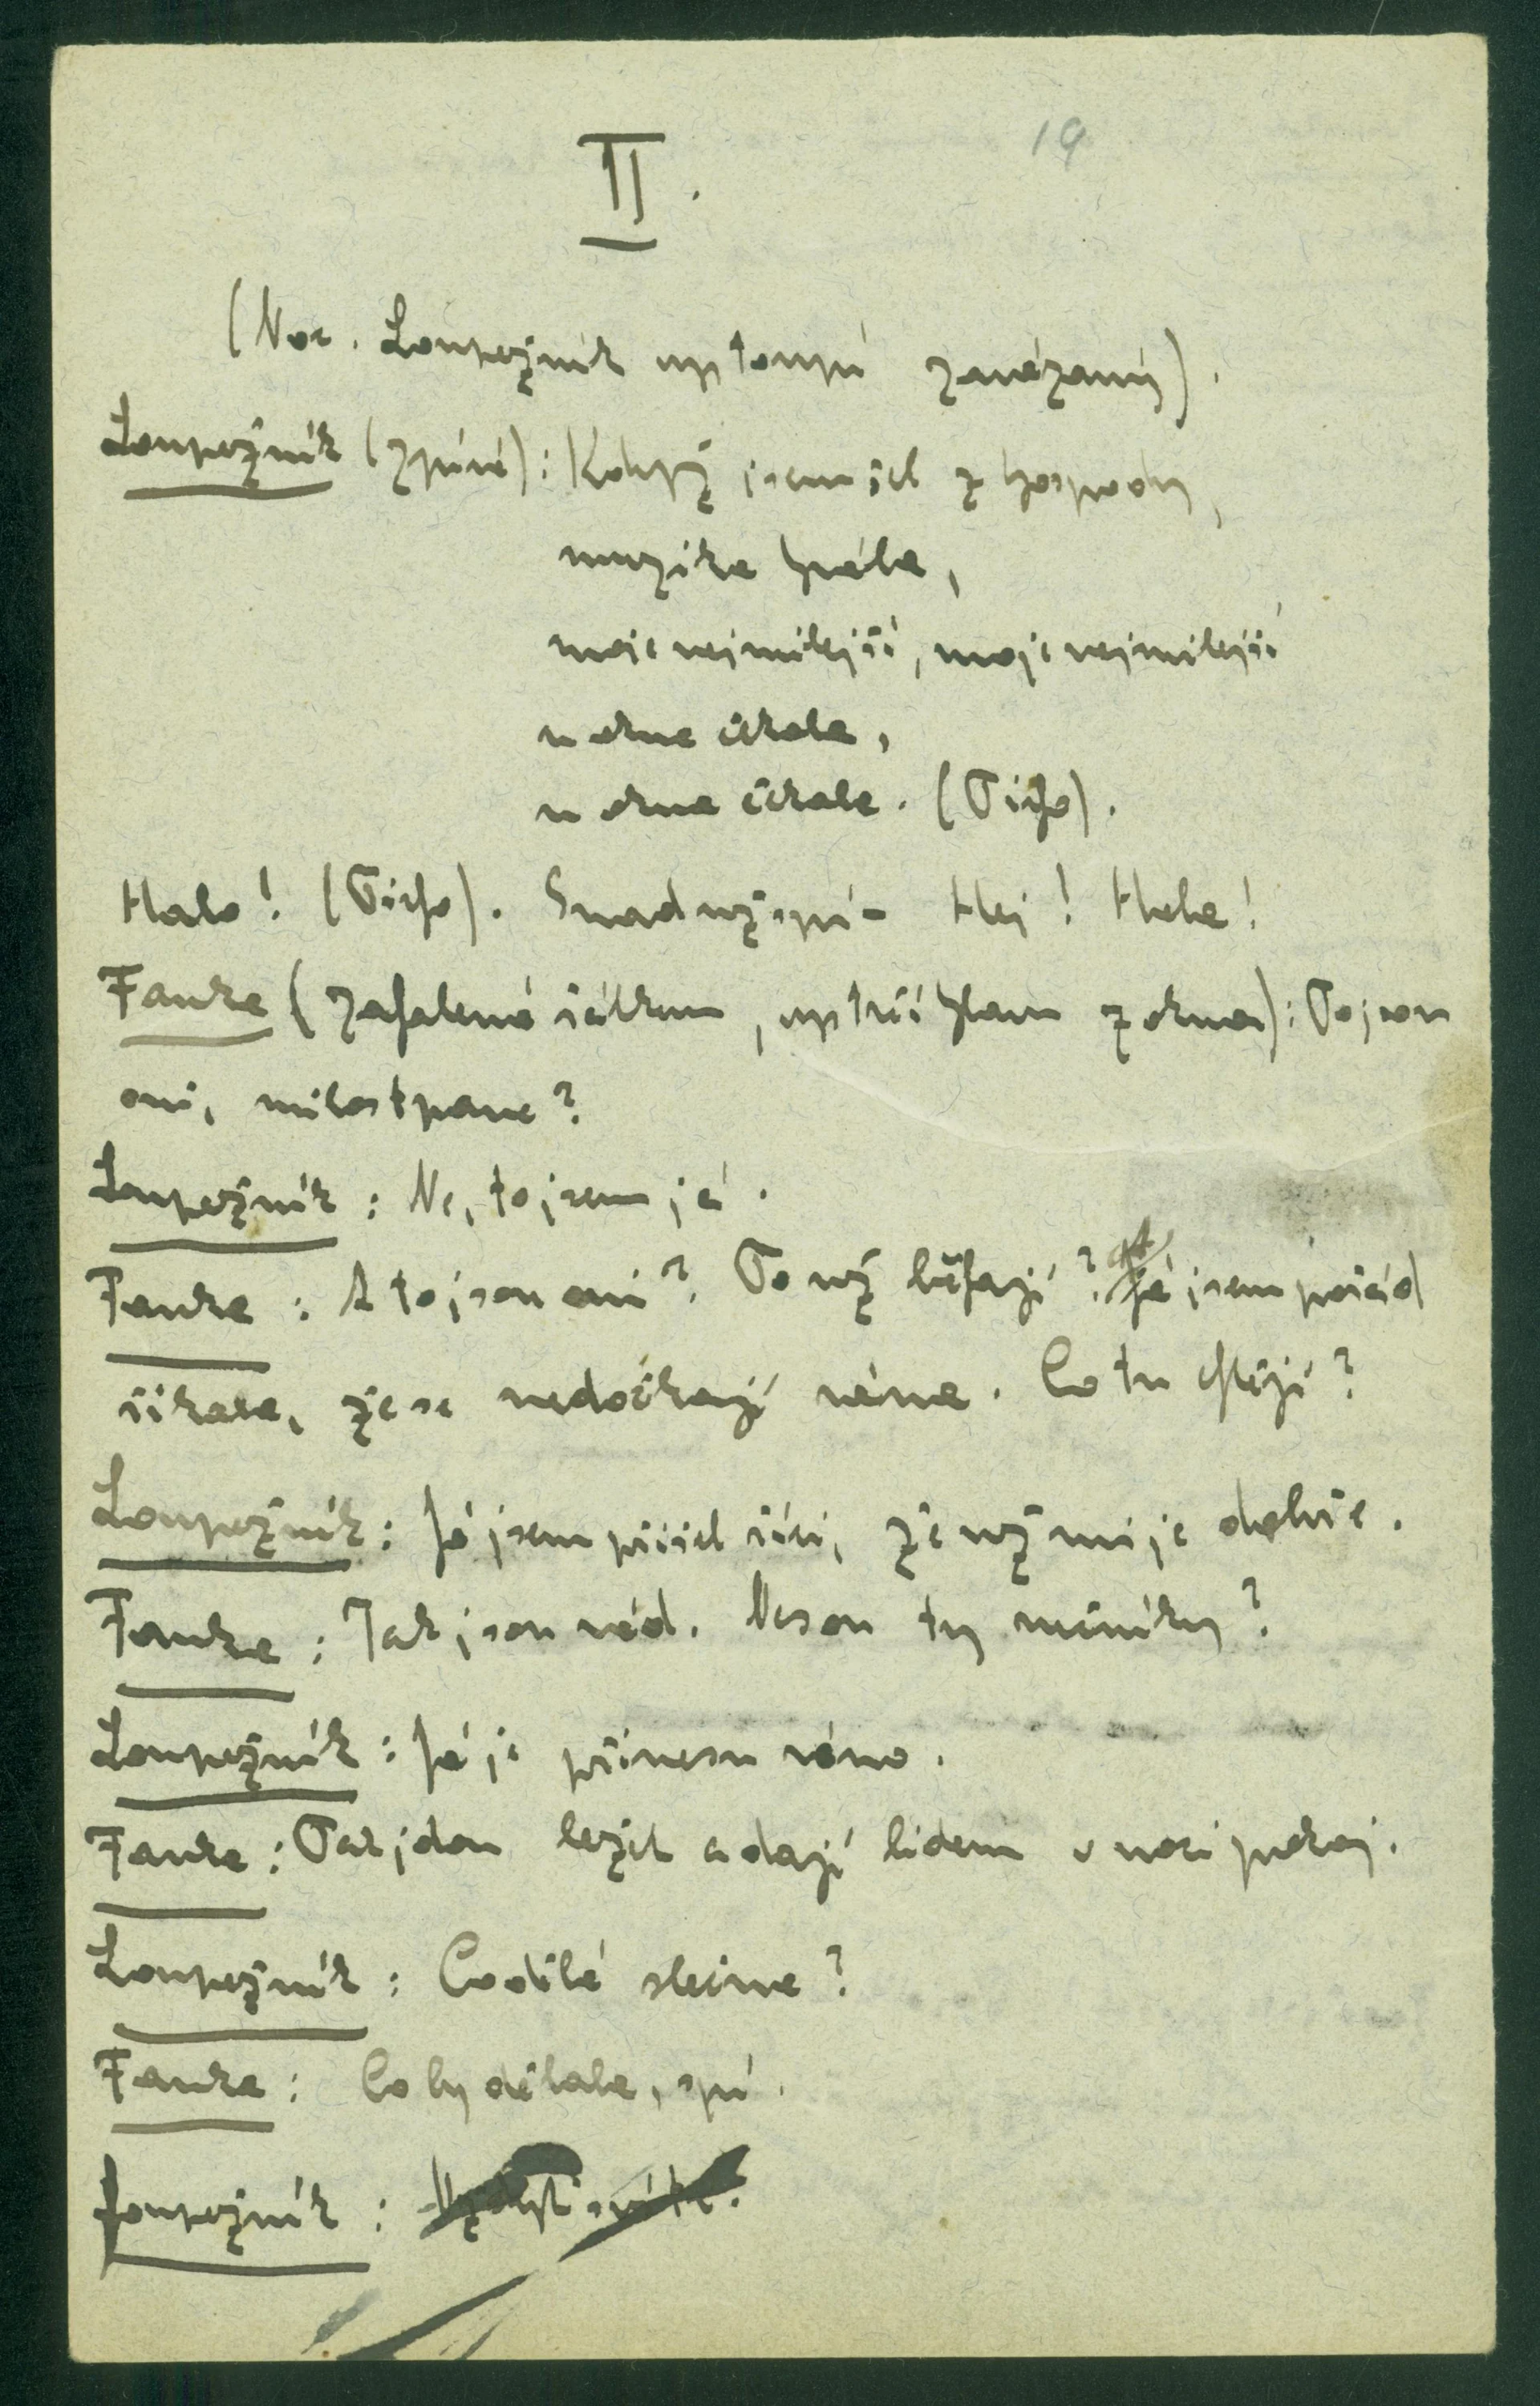 19
II.
(Noc. Loupežník vystoupí zavázaný).
Loupežník (zpívá): Když jsem šel z hospody,
muzika hrála,
moje nejmilejší, moje nejmilejší
u okna čekala,
u okna čekala. (Ticho).
Halo! (Ticho). Snad už spí – Hej! Hola!
Fanka (zahalená šátkem, vystrčí hlavu z okna): To jsou
oni, milostpane?
Loupežník: Ne, to jsem já.
Fanka: A to jsou oni? To už běhají? Já jsem pořád
říkala, že se nedočkají rána. Co tu chtějí?
Loupežník: Já jsem přišel říci, že už mi je dobře.
Fanka: Tak jsou rád. Nesou ty ručníky?
Loupežník: Já je přinesu ráno.
Fanka: Tak jdou ležet a dají lidem v noci pokoj.
Loupežník: Co dělá slečna?
Fanka: Co by dělala, spí.
Loupežník: